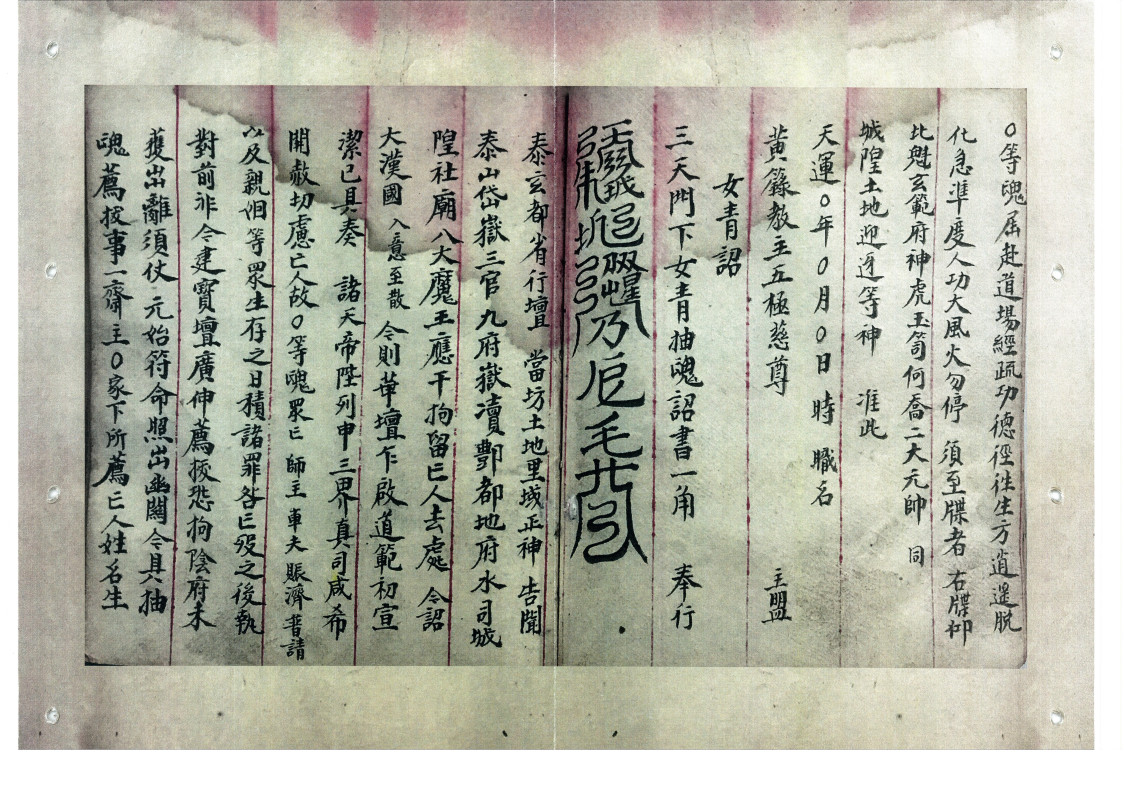 〇等魂届赴道場經疏功德徑徃生方逍遥脱
化急準度人功大風火勿停　須至牒者　右牒仰
北魁玄範府神虎玉笥何喬二大元帥　同
城隍土地迎迓等神　准此
天運〇年〇月〇日　時　職名
黃籙教主五極慈尊　主盟
女青詔
三天門下女青抽魂詔書一角　奉行
泰玄都省行壇　當坊土地里域正神　告聞
泰山岱嶽三官九府嶽凟酆都地府水司城
隍社廟八大魔王應干拘留亡人去處　令詔
大漢國　入意至散　令則華壇乍啟道範初宣
潔已具奏　諸天帝陛列申三界真司咸希
開赦切慮亡人故〇等魂眾亡　師主　車夫　賑濟　普請
以及親姻等眾生存之日積諸罪咎亡殁之後執
對前非　今建寶壇廣伸薦拔恐拘陰府未
獲出離須仗　元始符命照出幽關令具抽
魂薦拔事一齋主〇家下所薦亡人姓名生